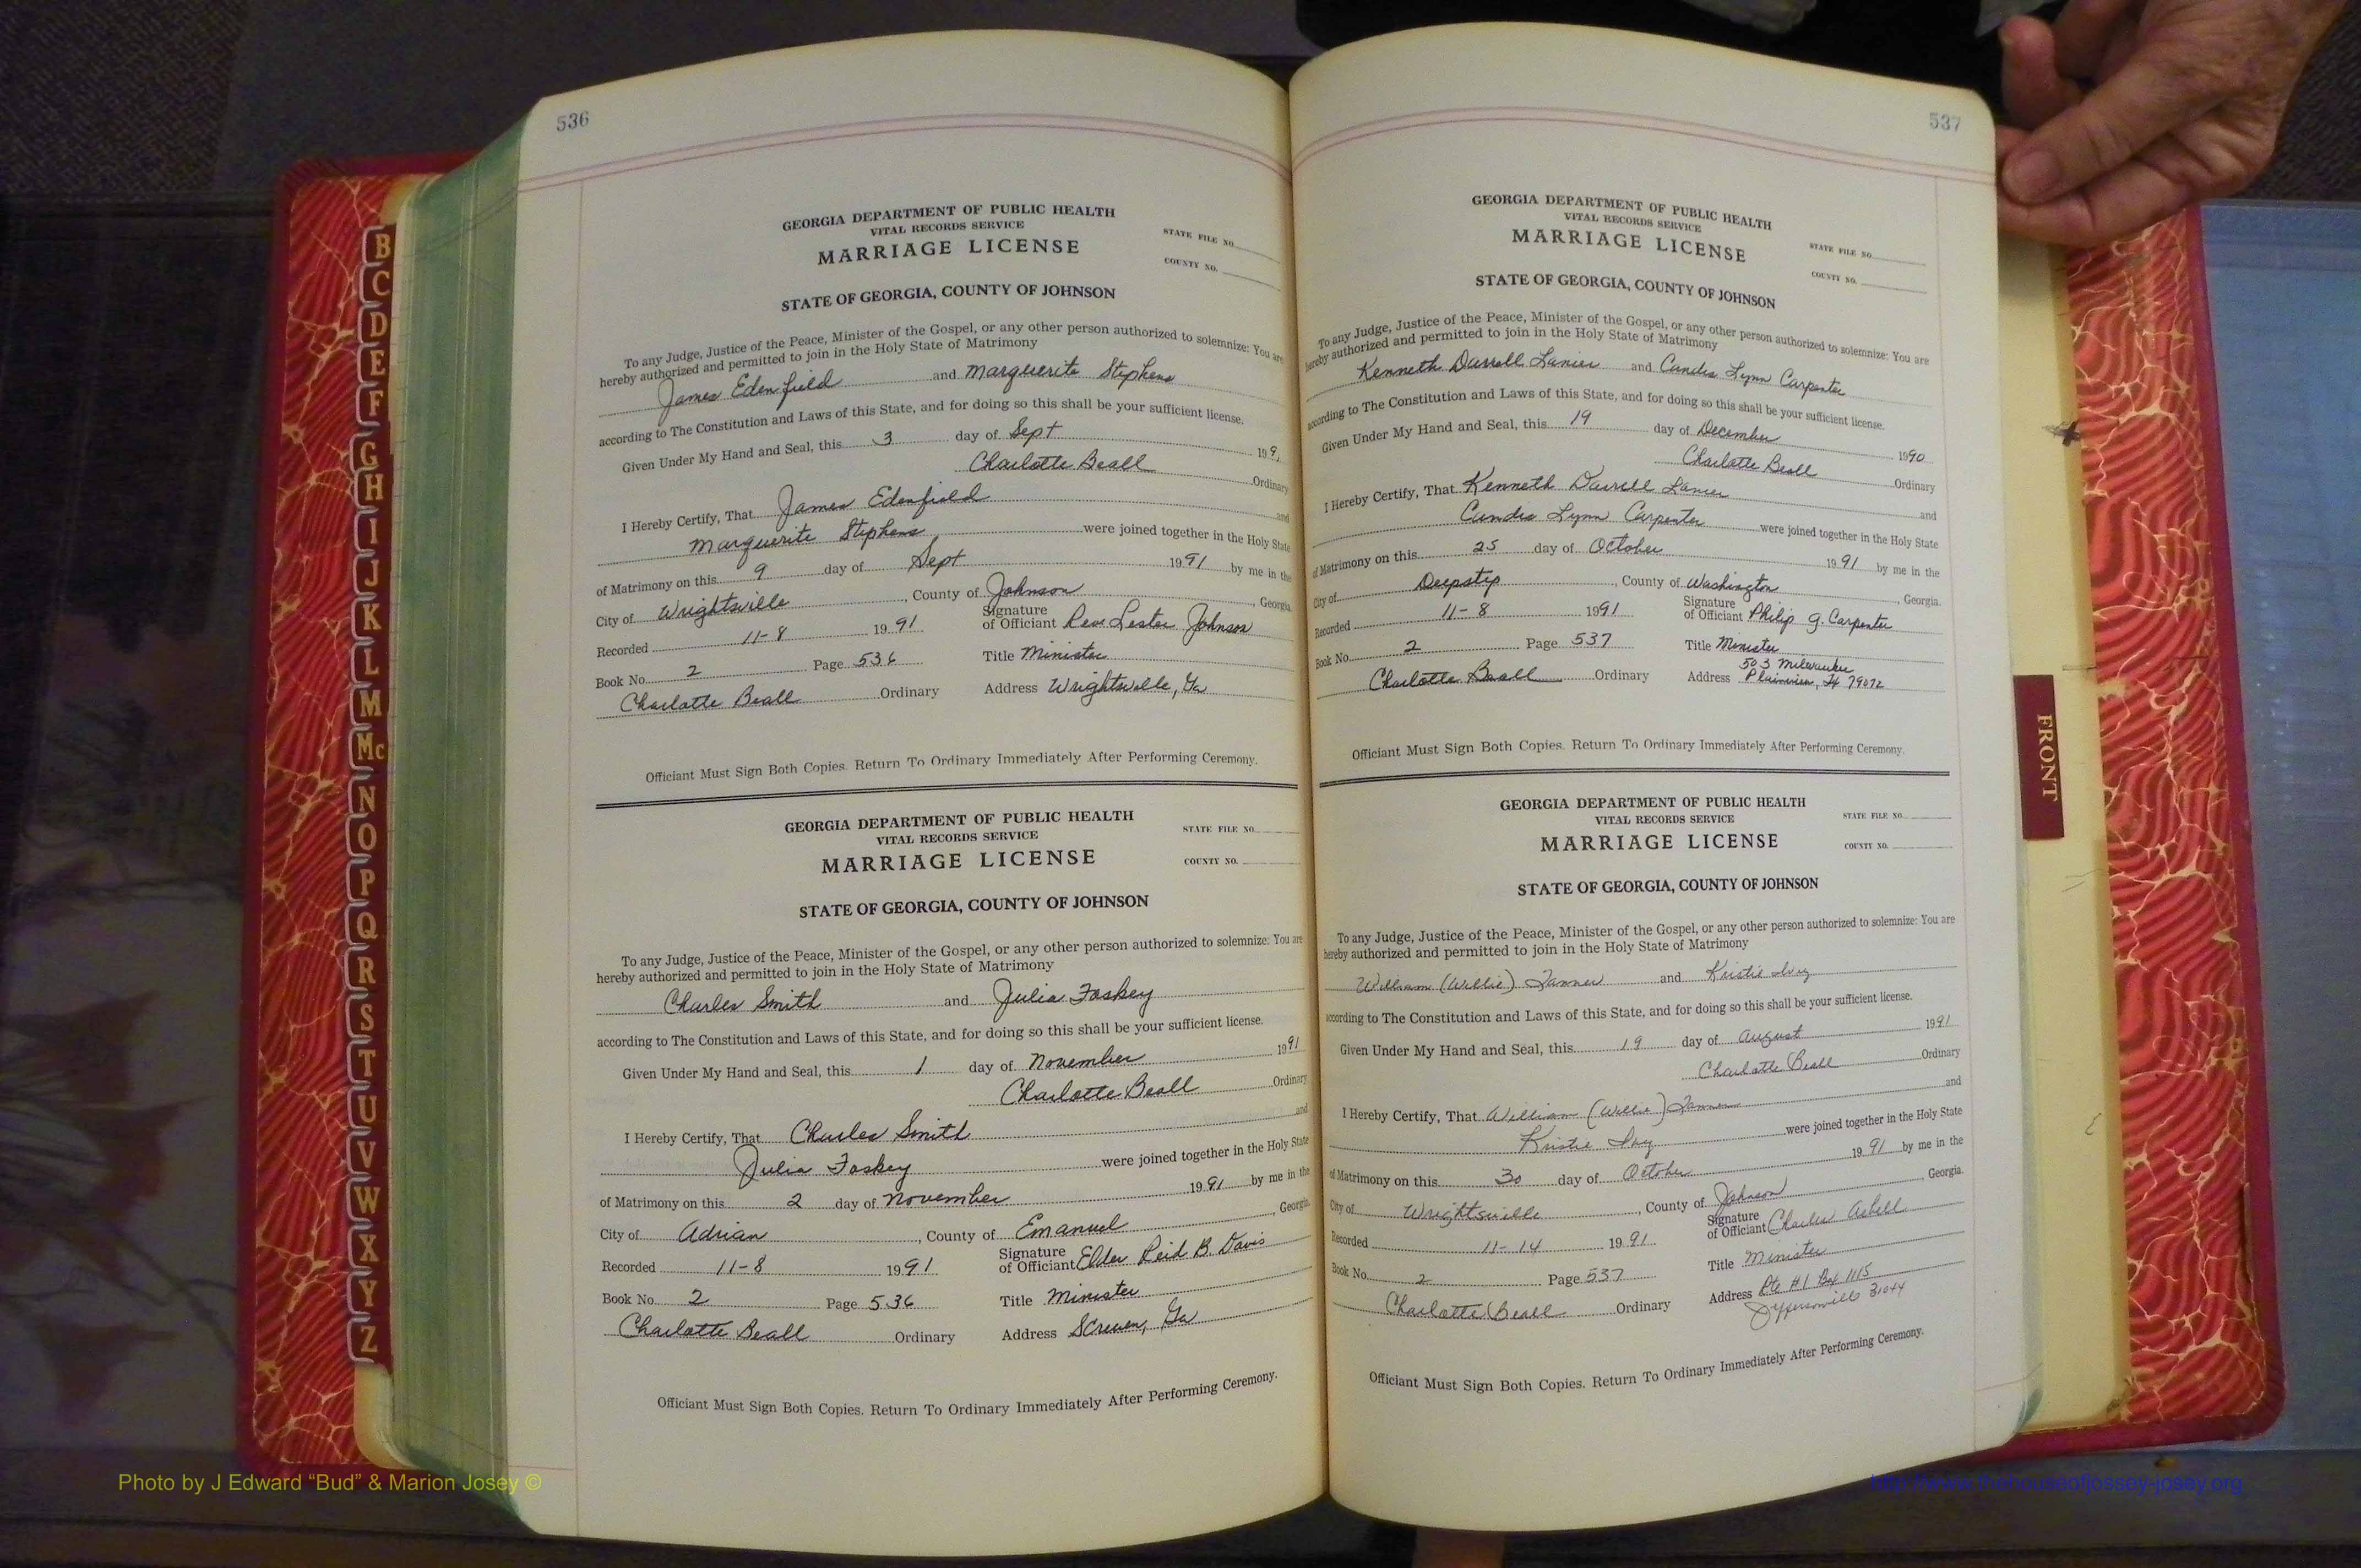 536
GEORGIA DEPARTMENT OF PUBLIC HEALTH
VITAL RECORDS SERVICE
MARRIAGE LICENSE
STATE FILE NO.
COUNTY NO.
STATE OF GEORGIA, COUNTY OF JOHNSON
To any Judge, Justice of the Peace, Minister of the Gospel, or any other person authorized to solemnize: You are
hereby authorized and permitted to join in the Holy State of Matrimony
James Edenfield and Marguerite Stephens
according to The Constitution and Laws of this State, and for doing so this shall be your sufficient license.
Given Under My Hand and Seal, this 3 day of Sept 199
Charlotte Beall Ordinary
I Hereby Certify, That James Edenfield and
Marguerite Stephens were joined together in the Holy State
of Matrimony on this 9 day of Sept 1991 by me in the
City of Wrightsville, County of Johnson, Georgia.
Recorded 11-8 1991 Signature of Officiant Rev. Lester Johnson
Book No. 2 Page 536 Title Minister
Charlotte Beall Ordinary Address Wrightsville, Ga
Officiant Must Sign Both Copies. Return To Ordinary Immediately After Performing Ceremony.
GEORGIA DEPARTMENT OF PUBLIC HEALTH
VITAL RECORDS SERVICE
MARRIAGE LICENSE
STATE FILE NO.
COUNTY NO.
STATE OF GEORGIA, COUNTY OF JOHNSON
To any Judge, Justice of the Peace, Minister of the Gospel, or any other person authorized to solemnize: You are
hereby authorized and permitted to join in the Holy State of Matrimony
Charles Smith and Julia Foskey
according to The Constitution and Laws of this State, and for doing so this shall be your sufficient license.
Given Under My Hand and Seal, this 1 day of November 1991
Charlotte Beall Ordinary
I Hereby Certify, That Charles Smith and
Julia Foskey were joined together in the Holy State
of Matrimony on this 2 day of November 1991 by me in the
City of Adrian, County of Emanuel, Georgia.
Recorded 11-8 1991 Signature of Officiant Elder Reid B. Davis
Book No. 2 Page 536 Title Minister
Charlotte Beall Ordinary Address Screven, Ga
Officiant Must Sign Both Copies. Return To Ordinary Immediately After Performing Ceremony.
537
GEORGIA DEPARTMENT OF PUBLIC HEALTH
VITAL RECORDS SERVICE
MARRIAGE LICENSE
STATE FILE NO.
COUNTY NO.
STATE OF GEORGIA, COUNTY OF JOHNSON
To any Judge, Justice of the Peace, Minister of the Gospel, or any other person authorized to solemnize: You are
hereby authorized and permitted to join in the Holy State of Matrimony
Kenneth Darrell Lanier and Candis Lynn Carpenter
according to The Constitution and Laws of this State, and for doing so this shall be your sufficient license.
Given Under My Hand and Seal, this 19 day of December 1990
Charlotte Beall Ordinary
I Hereby Certify, That Kenneth Darrell Lanier and
Candis Lynn Carpenter were joined together in the Holy State
of Matrimony on this 25 day of October 1991 by me in the
City of Deepstep, County of Washington, Georgia.
Recorded 11-8 1991 Signature of Officiant Philip G. Carpenter
Book No. 2 Page 537 Title Minister
503 Milwaukee
Charlotte Beall Ordinary Address Plainview, Tx 79072
Officiant Must Sign Both Copies. Return To Ordinary Immediately After Performing Ceremony.
GEORGIA DEPARTMENT OF PUBLIC HEALTH
VITAL RECORDS SERVICE
MARRIAGE LICENSE
STATE FILE NO.
COUNTY NO.
STATE OF GEORGIA, COUNTY OF JOHNSON
To any Judge, Justice of the Peace, Minister of the Gospel, or any other person authorized to solemnize: You are
hereby authorized and permitted to join in the Holy State of Matrimony
William (Willie) Tanner and Kristie Ivey
according to The Constitution and Laws of this State, and for doing so this shall be your sufficient license.
Given Under My Hand and Seal, this 19 day of August 1991
Charlotte Beall Ordinary
I Hereby Certify, That William (Willie) Tanner and
Kristie Ivey were joined together in the Holy State
of Matrimony on this 30 day of October 1991 by me in the
City of Wrightsville, County of Johnson, Georgia.
Recorded 11-14 1991 Signature of Officiant Charles Asbell
Book No. 2 Page 537 Title Minister
Address Rte #1 Box 1115
Charlotte Beall Ordinary Jeffersonville 31044
Officiant Must Sign Both Copies. Return To Ordinary Immediately After Performing Ceremony.
B
C
D
E
F
G
H
I
J
K
L
M
Mc
N
O
P
Q
R
S
T
U
V
W
X
Y
Z
FRONT
Photo by J Edward “Bud” & Marion Josey ©
http://www.thehouseofjossey-josey.org